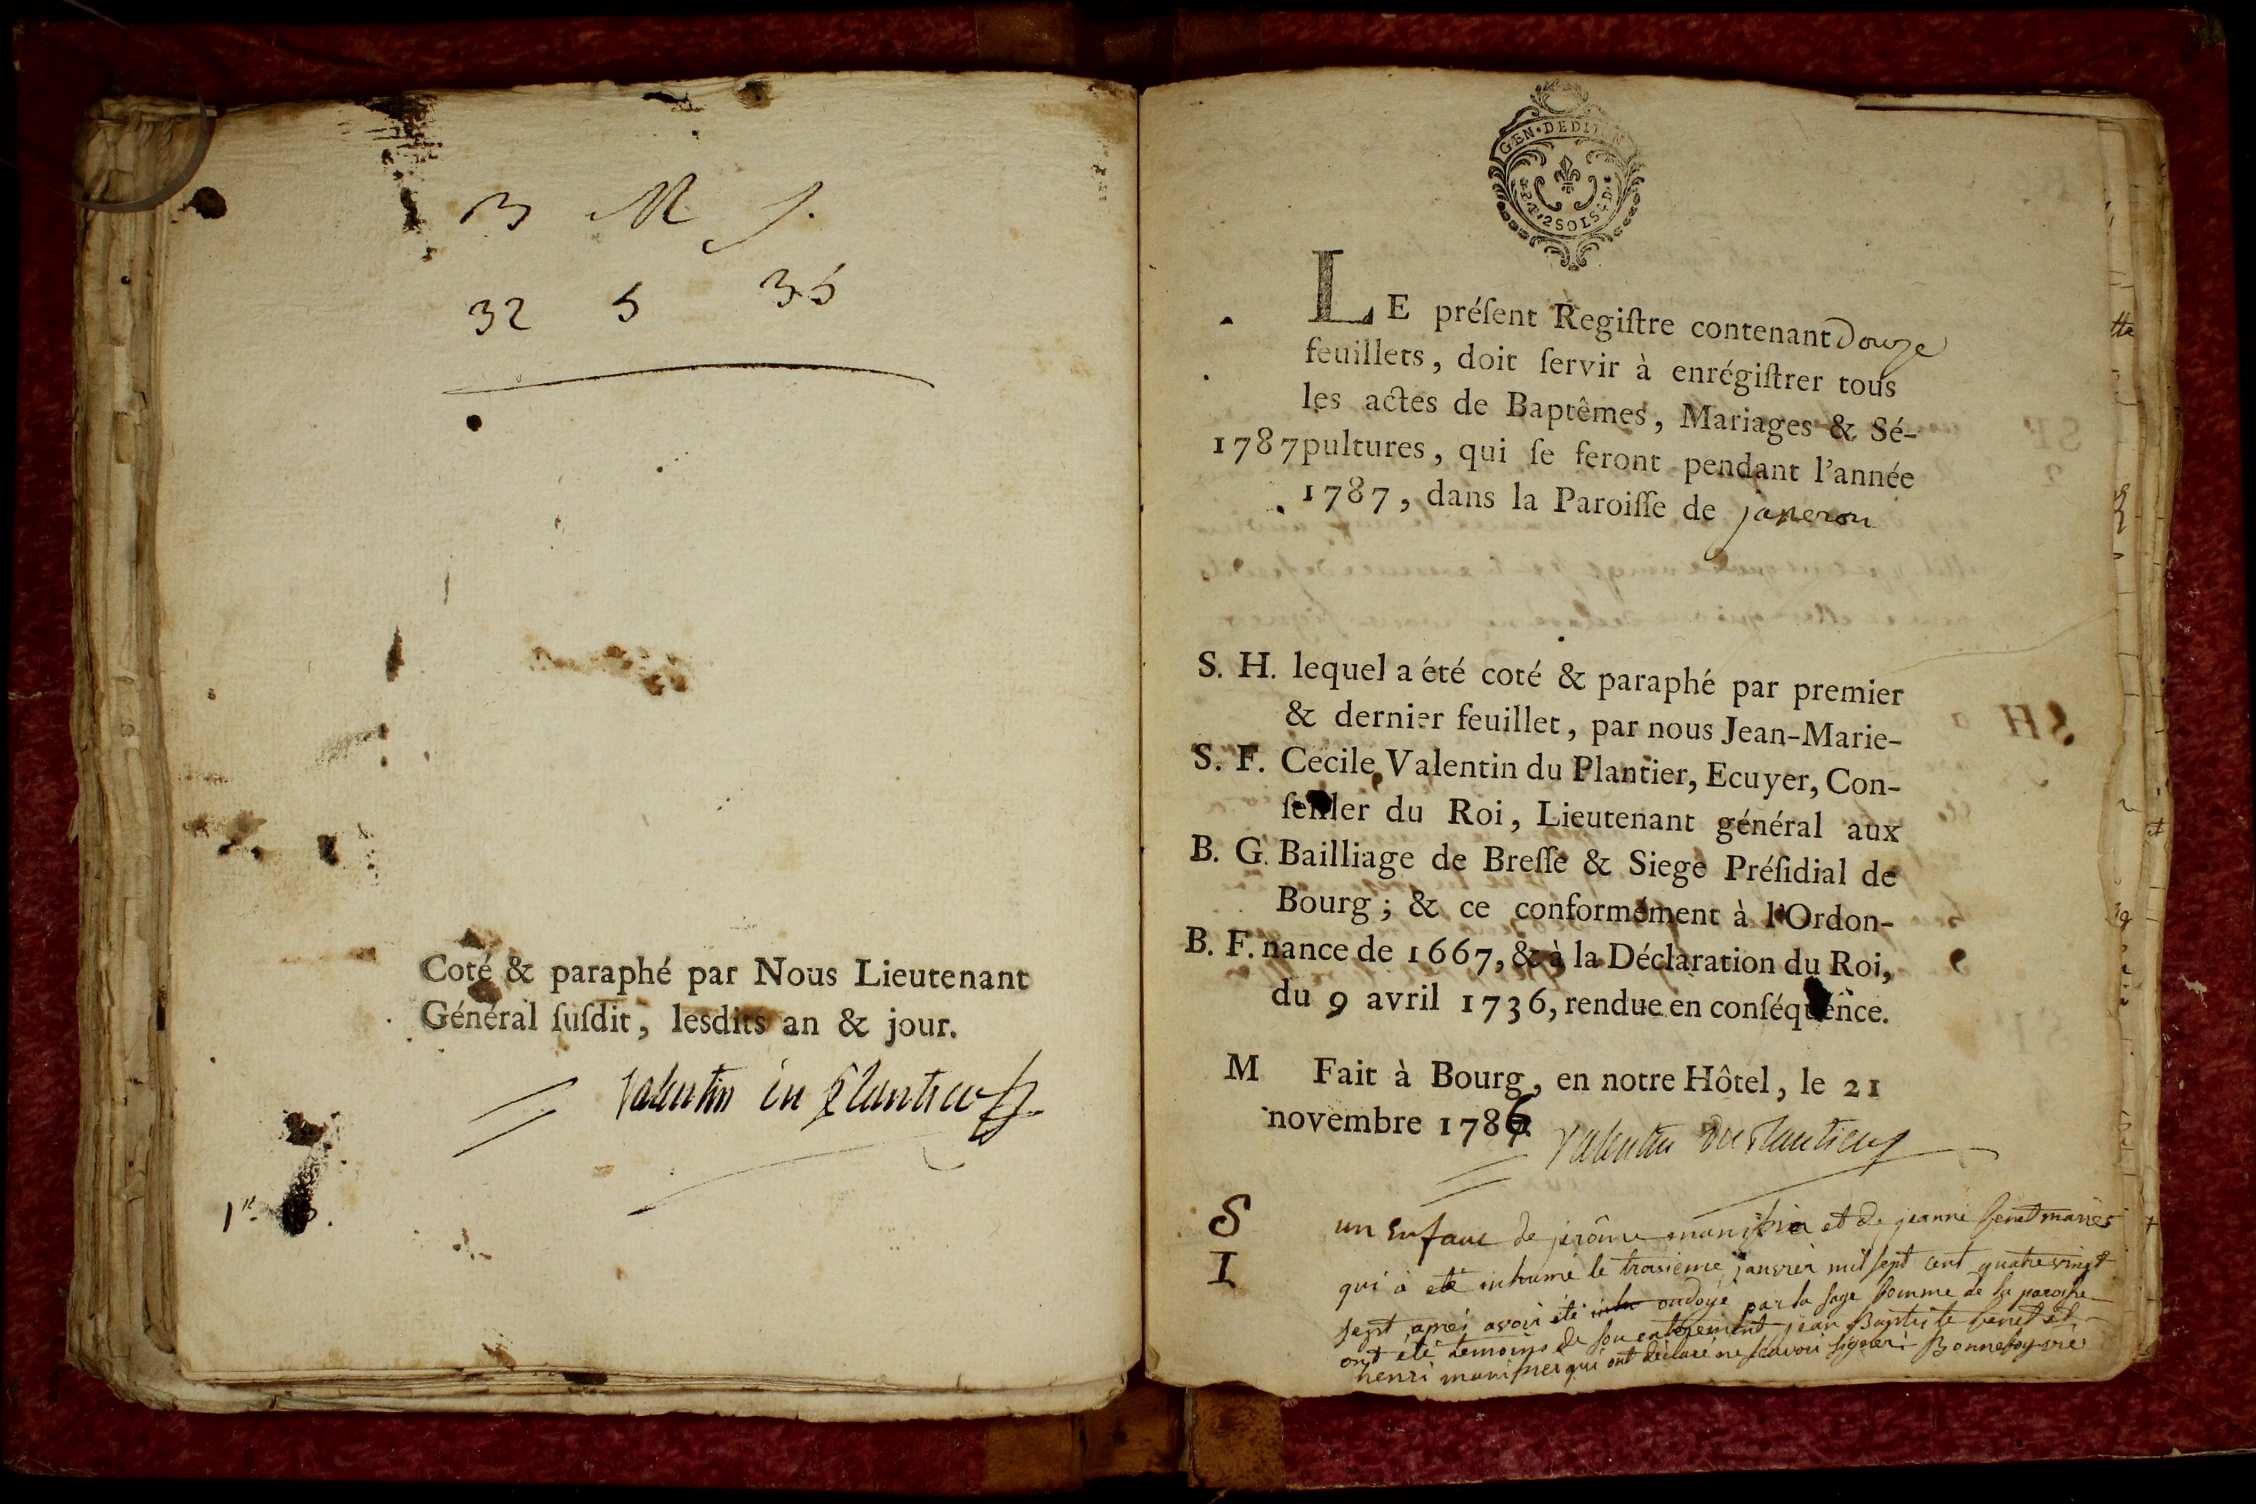 B M S.
32 5 35
Coté & paraphé par Nous Lieutenant
Général ſuſdit, lesdits an & jour.
Valentin du Plantier
GEN • DEDIJON
2 SOLS 4 D
LE préſent Regiſtre contenant Douze
feuillets, doit ſervir à enrégiſtrer tous
les actes de Baptêmes, Mariages & Sé-
1787 pultures, qui ſe feront pendant l'année
1787, dans la Paroiſſe de janeron
S. H. lequel a été coté & paraphé par premier
& dernier feuillet, par nous Jean-Marie-
S. F. Cecile Valentin du Plantier, Ecuyer, Con-
ſeiller du Roi, Lieutenant général aux
B. G. Bailliage de Breſſe & Siege Préſidial de
Bourg; & ce conformément à l'Ordon-
B. F. nance de 1667, & à la Déclaration du Roi,
du 9 avril 1736, rendue en conſéquence.
M Fait à Bourg, en notre Hôtel, le 21
novembre 1786
Valentin du Plantier
S un Enfant de jerôme et de jeanne benet mariés
I qui à eté inhumé le troisième janvier mil sept cent quatre vingt
sept, aprés avoir été ondoyé par la sage femme de la paroisse
ont été temoins de son enterement jean Baptiste benet et
henri qui ont déclaré ne scavoir signer Bonnefoy vic